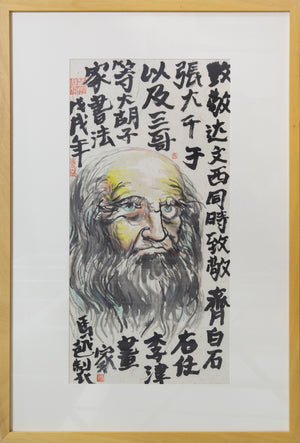 致敬达文西同時致敬齊白石
張大千于右任
以及三哥李津
等大胡子畫
家書法家
戊戌年馬越製